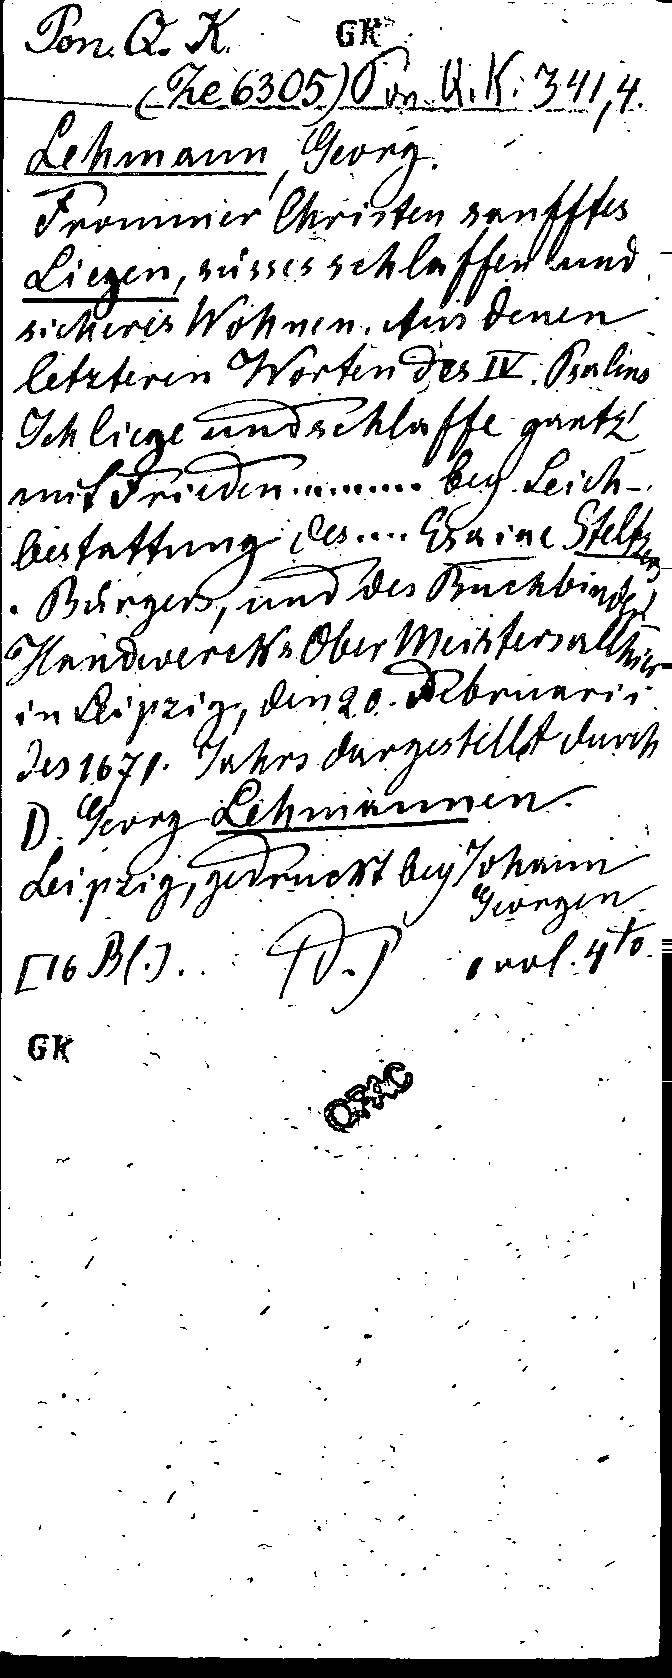 Pon. Q. K. GK
(Ze 6305) Pon. Q. K. 341,4.
Lehmann, Georg.
Frommer Christen sanfftes
Liegen, süsses schlaffen und
sicheres Wohnen. Aus denen
letzteren Worten des IV. Psalms
Ich liege und schlaffe gantz
mit Frieden........ bey Leich-
bestattung des.... Esaiae Steltzers
Bürgers, und des Buchbinder
Handwercks Ober Meisters allhier
in Leipzig, den 20. Februarii
des 1671. Jahrs dargestellt durch
D. Georg Lehmannen.
Leipzig, gedruckt bey Johann
Georgen
[16 Bl.]. 4to.
GK